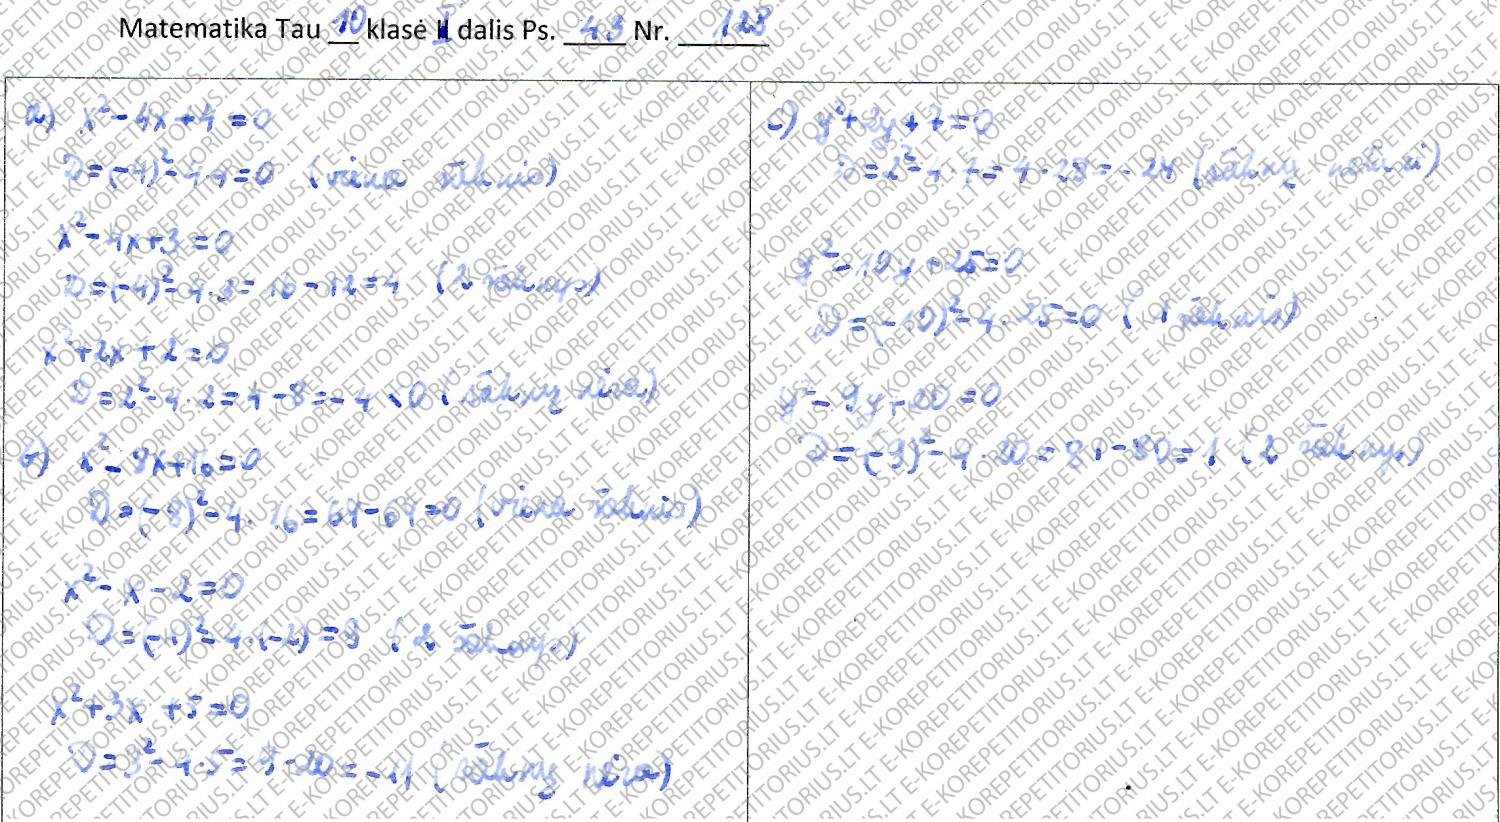 Matematika Tau 10 klasė I dalis Ps. 43 Nr. 128
a) x² - 4x + 4 = 0
D = (-4)² - 4·4 = 0 (viena šaknis)
x² - 4x + 3 = 0
D = (-4)² - 4·3 = 16 - 12 = 4 (2 šaknys)
x² + 2x + 2 = 0
D = 2² - 4·2 = 4 - 8 = -4 < 0 (šaknų nėra)
b) x² - 8x + 16 = 0
D = (-8)² - 4·16 = 64 - 64 = 0 (viena šaknis)
x² - x - 2 = 0
D = (-1)² - 4·(-2) = 9 (2 šaknys)
x² + 3x + 5 = 0
D = 3² - 4·5 = 9 - 20 = -11 (šaknų nėra)
c) y² + 2y + 7 = 0
D = 2² - 4·7 = 4 - 28 = -24 (šaknų
y² - 10y + 25 = 0
D = (-10)² - 4·25 = 0 (1 šaknis)
y² - 9y + 20 = 0
D = (-9)² - 4·20 = 81 - 80 = 1 (2 šaknys)
E-KOREPETITORIUS.LT